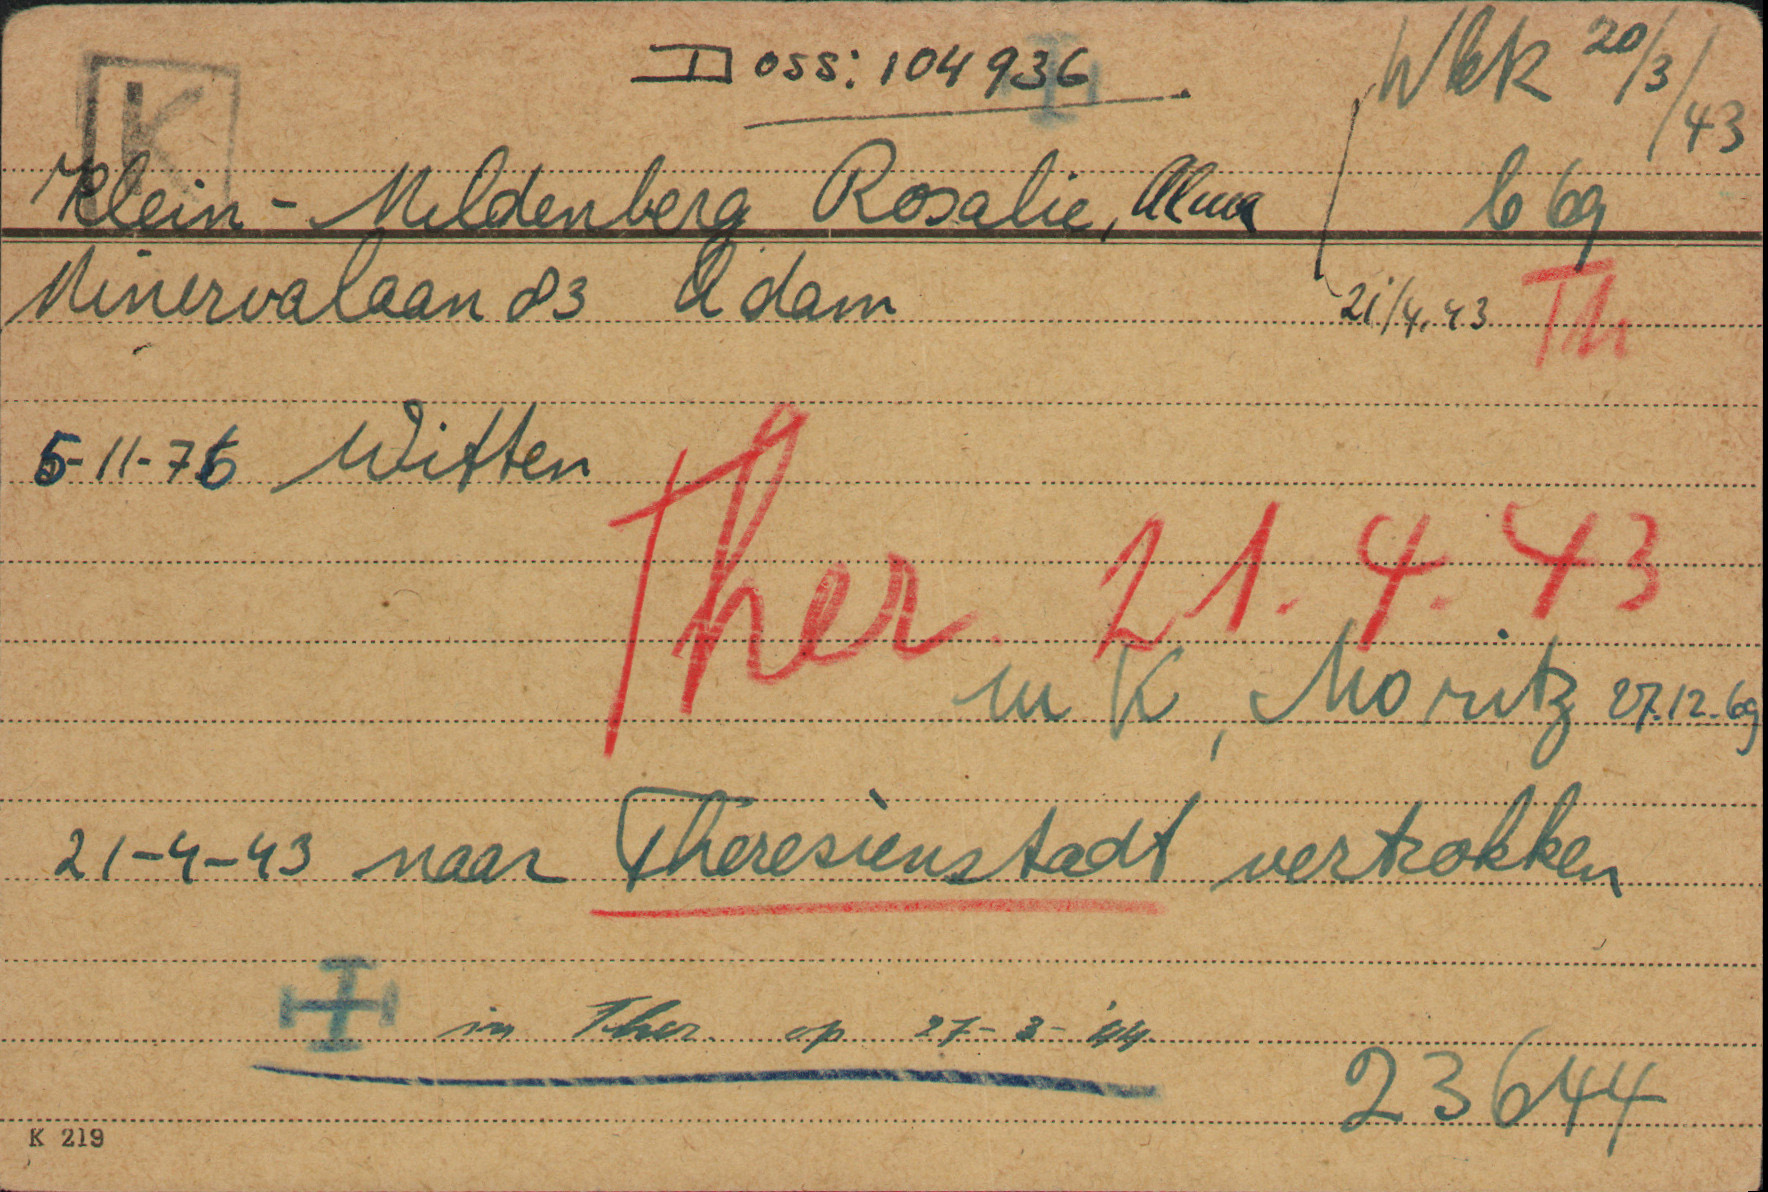 K
Doss: 104936
Wbk 20/3/43
Klein - Meldenberg Rosalie, Alma
b 69
Minervalaan 83 A'dam
21/4.43 Th
5-11-76 Witten
Ther. 21.4.43
m K, Moritz 27.12.69
21-4-43 naar Theresienstadt vertrokken
in Ther. op 27-3-'44.
23644
K 219